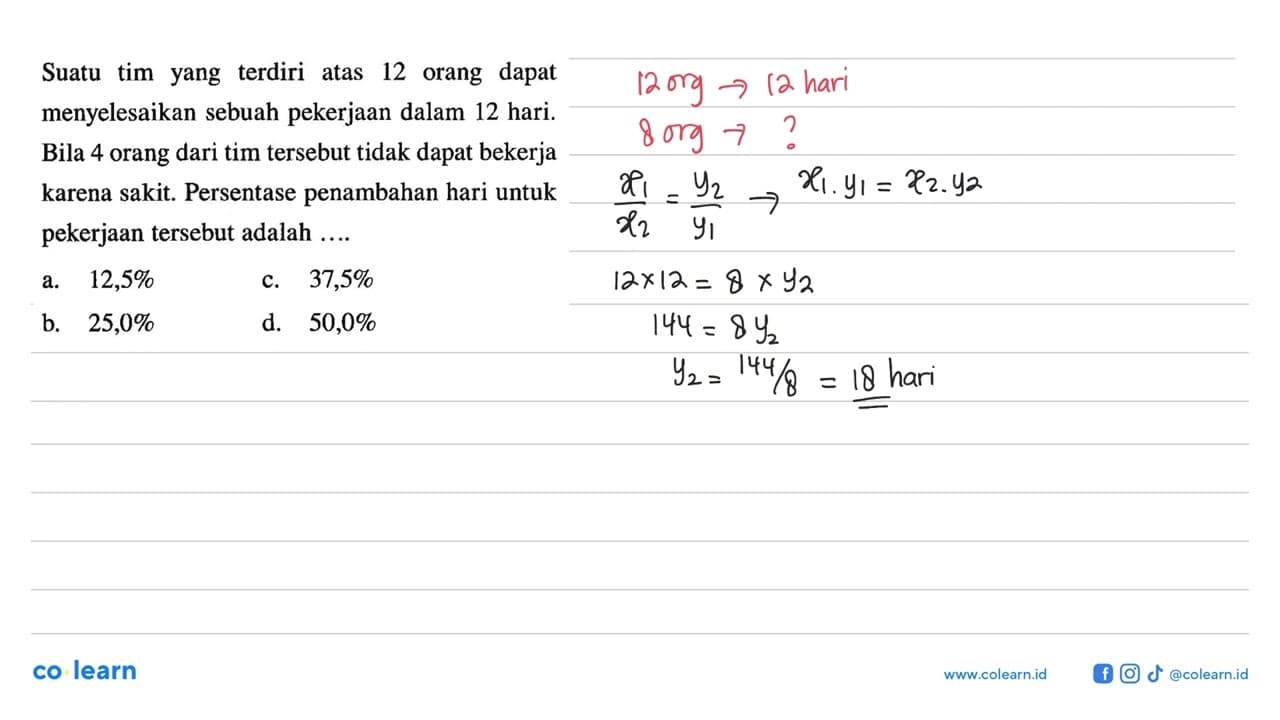 Suatu tim yang terdiri atas 12 orang dapat
menyelesaikan sebuah pekerjaan dalam 12 hari.
Bila 4 orang dari tim tersebut tidak dapat bekerja
karena sakit. Persentase penambahan hari untuk
pekerjaan tersebut adalah ....
a. 12,5% c. 37,5%
b. 25,0% d. 50,0%
12 org → 12 hari
8 org → ?
x₁/x₂ = y₂/y₁ → x₁.y₁ = x₂.y₂
12×12 = 8 × y₂
144 = 8y₂
y₂ = 144/8 = 18 hari
co learn
www.colearn.id
@colearn.id